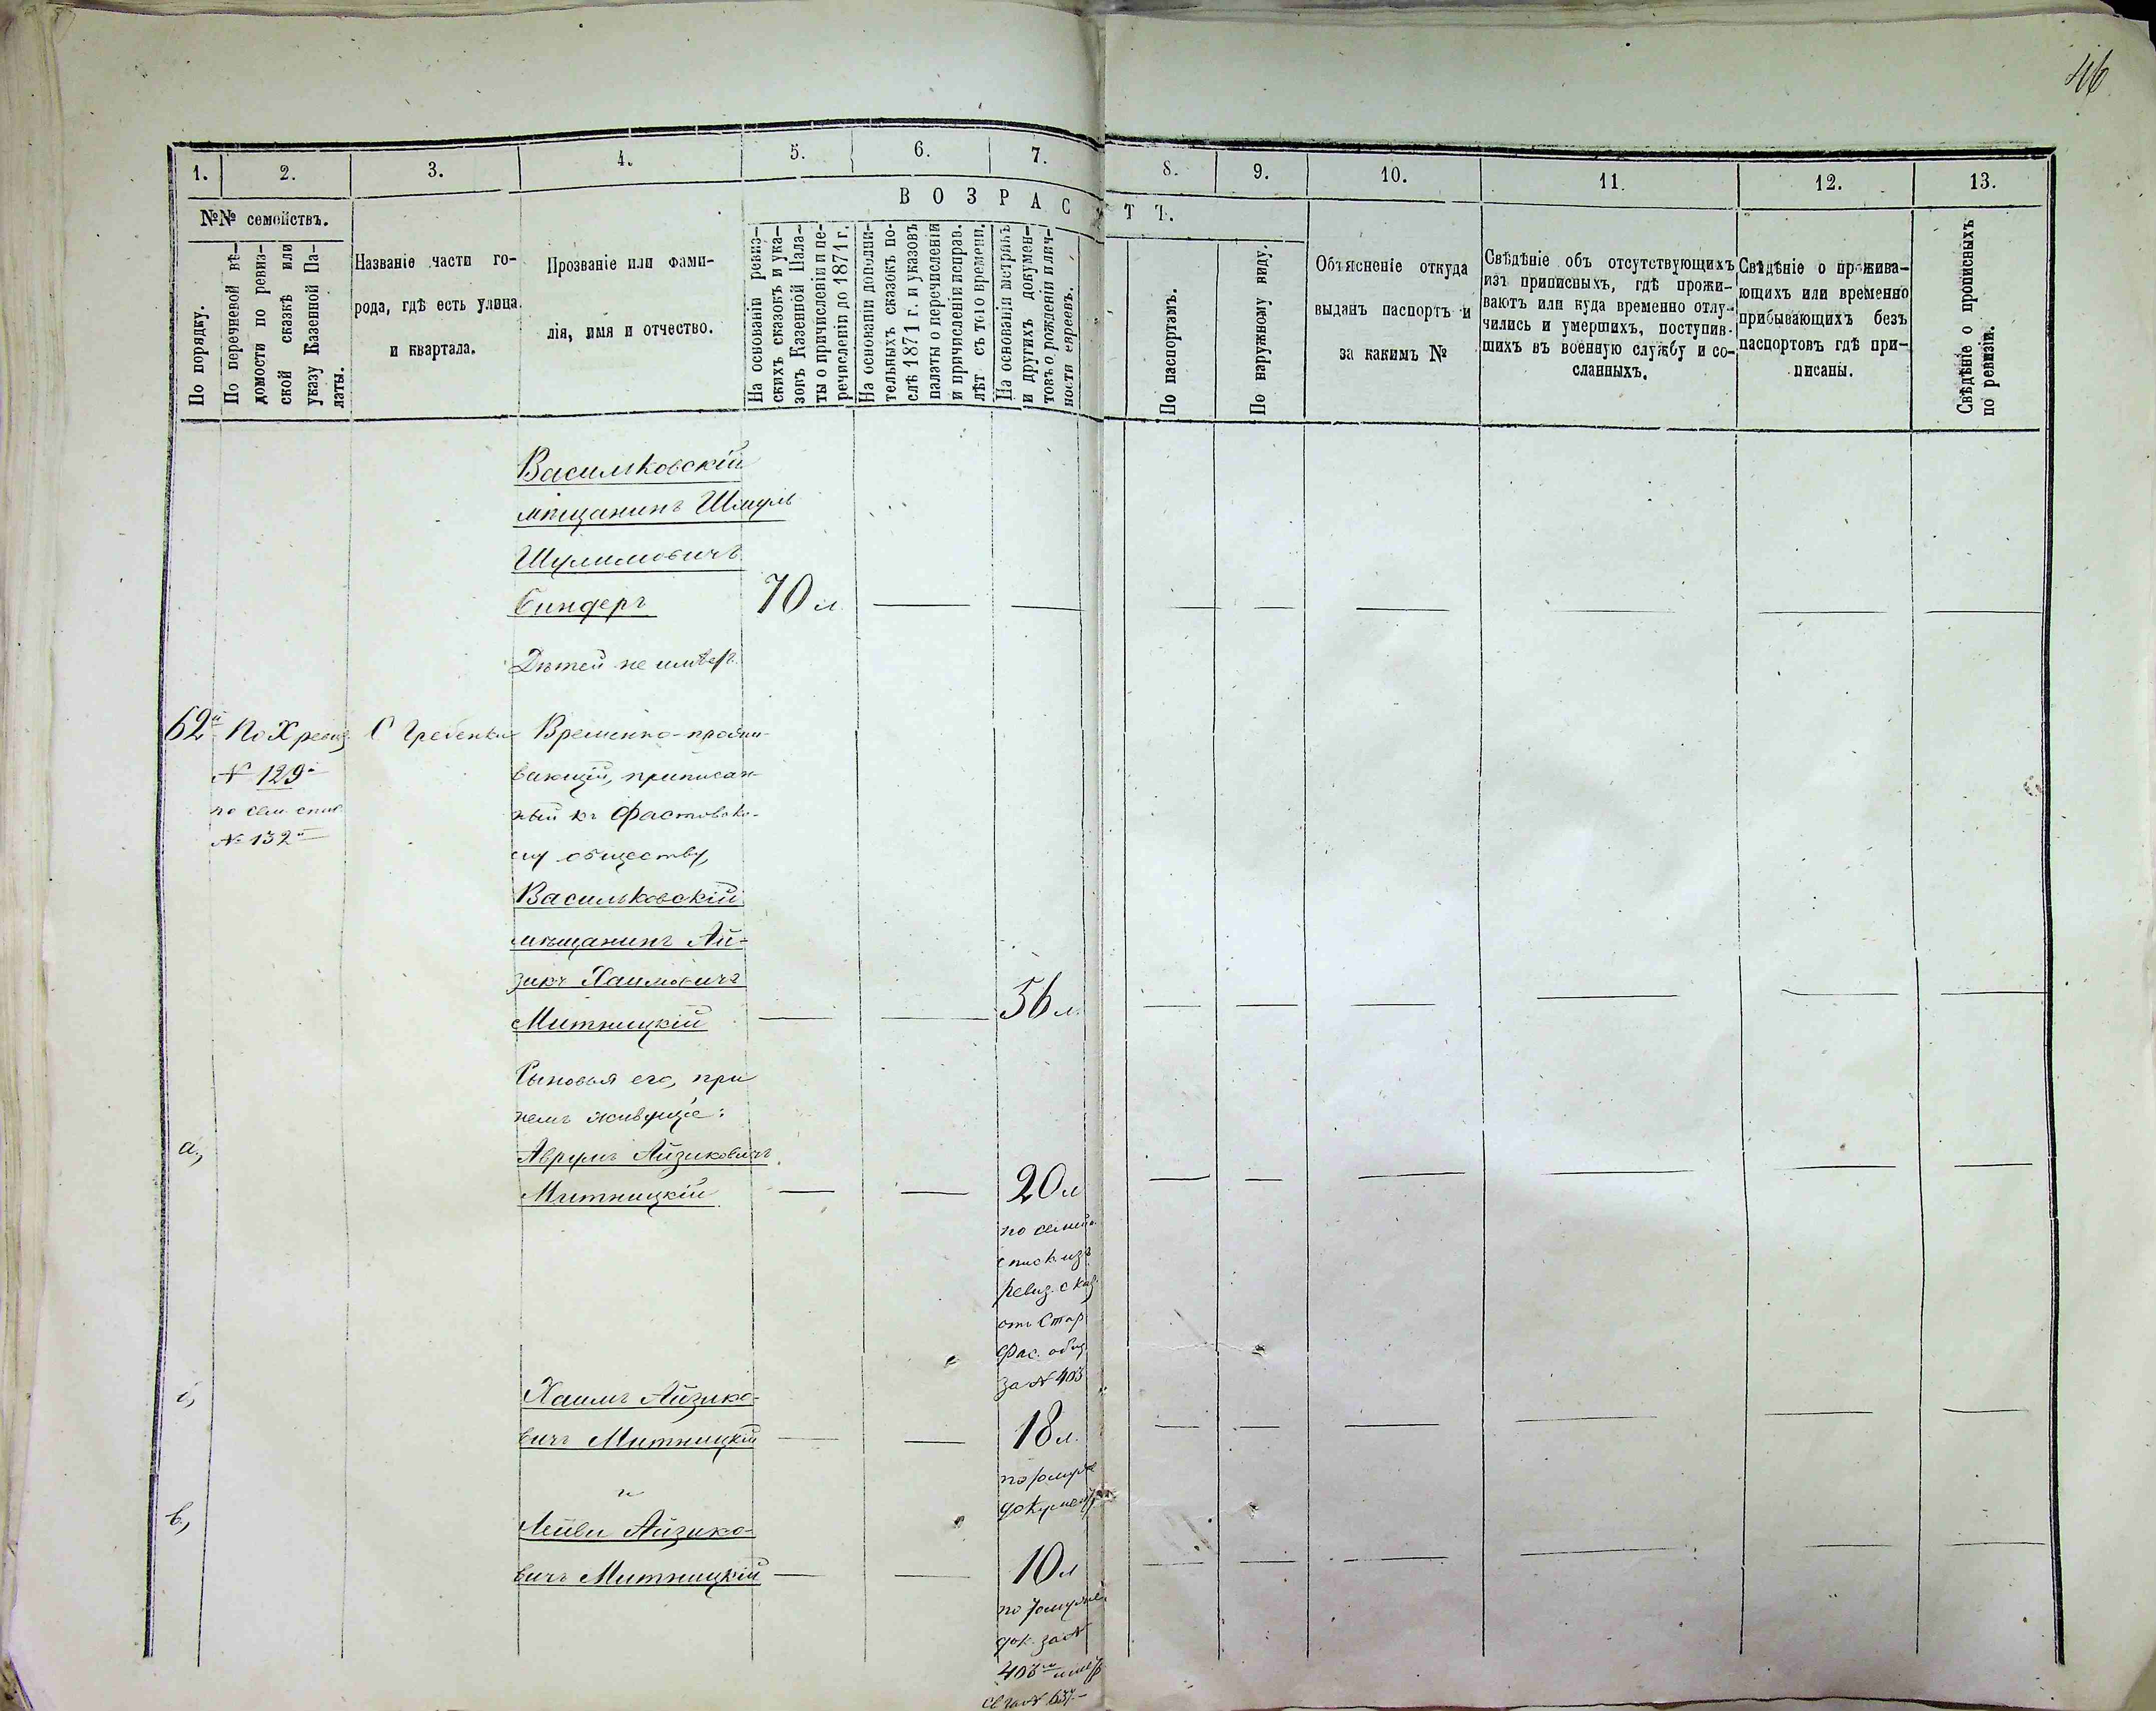 46
1.
2.
3.
4.
5.
6.
7.
8.
9.
10.
11.
12.
13.
№№ семействъ.
ВОЗРАСТЪ.
По порядку.
По перечневой вѣ-
домости по ревиз-
ской сказкѣ или
указу Казенной Па-
латы.
Названіе части го-
рода, гдѣ есть улица
и квартала.
Прозваніе или фами-
лія, имя и отчество.
На основаніи ревиз-
скихъ сказокъ и ука-
зовъ Казенной Пала-
ты о причисленіи и пе-
речисленіи до 1871 г.
На основаніи дополни-
тельныхъ сказокъ по-
слѣ 1871 г. и указовъ
палаты о перечисленіи
и причисленіи исправ.
лѣт съ того времени.
На основаніи метрикъ
и другихъ докумен-
товъ о рожденіи и лич-
ности евреевъ.
По паспортамъ.
По наружному виду.
Объясненіе откуда
выданъ паспортъ и
за какимъ №
Свѣдѣніе объ отсутствующихъ
изъ приписныхъ, гдѣ прожи-
ваютъ или куда временно отлу-
чились и умершихъ, поступив-
шихъ въ военную службу и со-
сланныхъ.
Свѣдѣніе о прожива-
ющихъ или временно
прибывающихъ безъ
паспортовъ гдѣ при-
писаны.
Свѣдѣніе о прописныхъ
по ревизіи.
Васильковскій
мѣщанинъ Шмуль
Шулимовичъ
Биндеръ 70 л.
Дѣтей не имѣетъ.
62й По X ревиз. С Гребенки Временно-прожи-
№ 129й вающій, приписан-
по сем. спис. ный къ Фастовско-
№ 132й
му обществу,
Васильковскій
мѣщанинъ Ай-
зикъ Хаимовичъ
Митницкій 56 л.
Сыновья его, при
немъ живущіе:
а., Аврумъ Айзиковичъ
Митницкій 20 л
по семейн.
списк. изъ
ревиз. сказ.
отъ Стар.
Фас. общ.
за № 403
Хаимъ Айзико-
вичъ Митницкій 18 л.
документ.
и
в., Лейви Айзико-
вичъ Митницкій 10 л
док. за №
403
за №